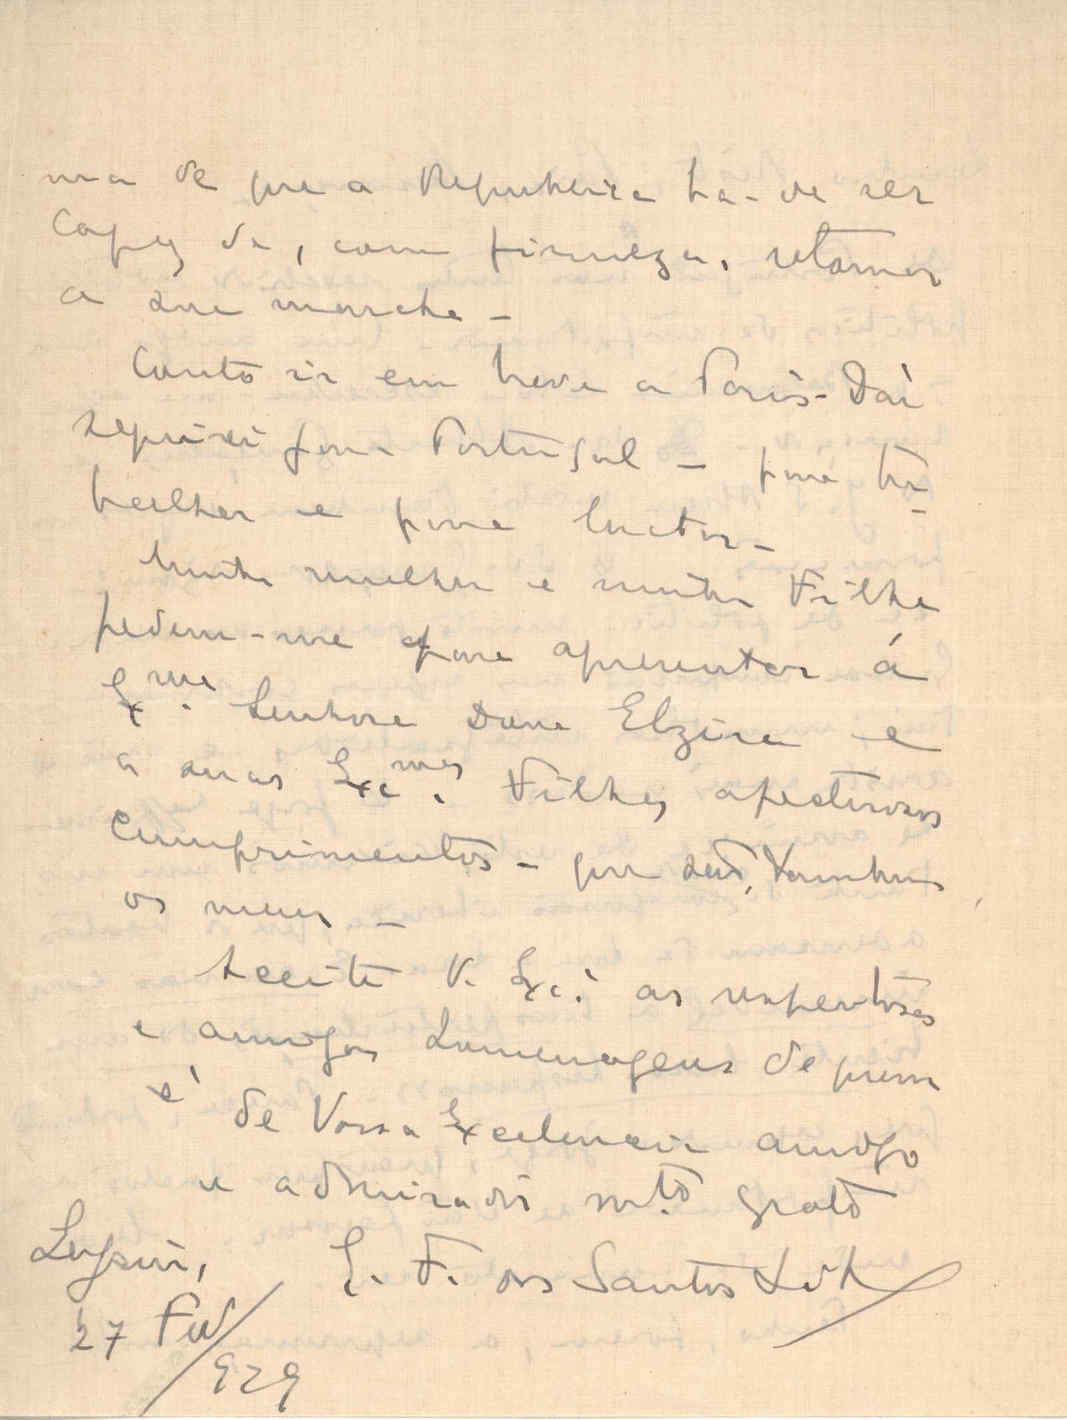 ma de que a Republica ha-de ser
capaz de, com firmeza, retomar
a sua marcha -
Conto ir em breve a Paris - Daí
seguirei para Portugal - para tra-
balhar e para luctar -
Minha mulher e minha Filha
pedem-me para apresentar á
Exma. Senhora Dona Elzira e
a suas Excmas. Filhas afectuosos
cumprimentos - que são, tambem
os meus -
Acceite V. Exc.ª as respeitosas
e amigas homenagens de quem
é de Vossa Excelencia amigo
e admirador mto. grato
E. F. dos Santos Silva
27 Fev/929